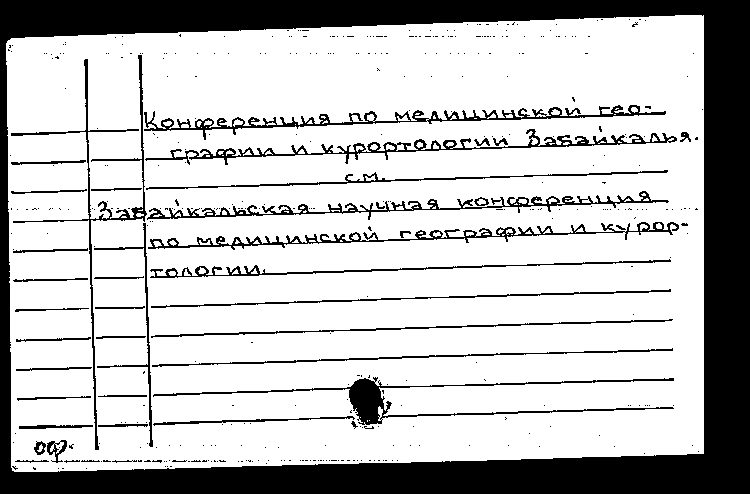 Конференция по медицинской гео-
графии и курортологии Забайкалья.
см.
Забайкальская научная конференция
по медицинской географии и курор-
тологии.